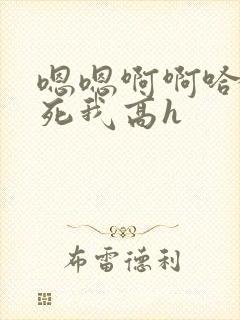 嗯嗯啊啊哈
死我高h
布雷德利